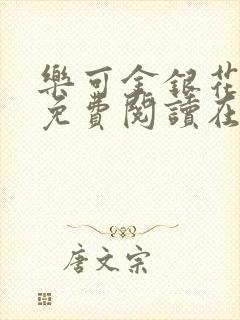 樂可金銀花
免費閱讀在
唐文宗